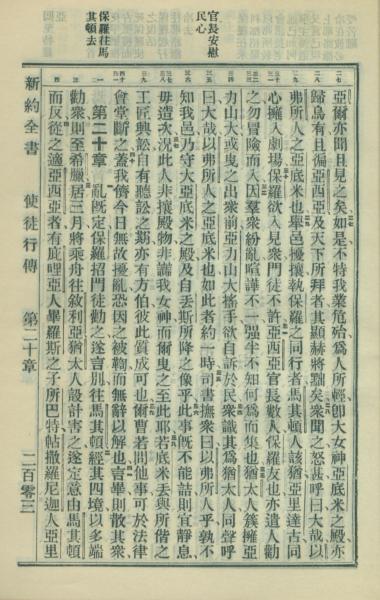 官長安慰
民心
保羅往馬
其頓去
亞爾亦聞且見之矣如是不特我業危殆爲人所輕卽大女神亞底米之殿亦
歸烏有且徧亞西亞及天下所拜者其顯赫將黜矣衆聞之怒甚呼曰大哉以
弗所人之亞底米也舉邑擾攘執保羅之同行者馬其頓人該猶亞里達古同
心擁入劇場保羅欲入見衆門徒不許亞西亞官長數人保羅友也亦遣人勸
之勿冒險而入因羣衆紛亂喧譁不一强半不知何爲而集也猶太人簇擁亞
力山大或曳之出衆前亞力山大搖手欲自訴於民衆識其爲猶太人同聲呼
曰大哉以弗所人之亞底米也如此者約一時司書撫衆曰以弗所人乎孰不
知我邑乃守大亞底米之殿及自丟斯所降之像乎此事旣不能詰則宜靜息
毋造次況此人非攘殿物非謗我女神而爾曳之至此耶若底米丟與所偕之
工匠興訟自有聽訟之期亦有方伯彼此質成可也爾曹若問他事可於法律
會堂斷之蓋我儕今日無故擾亂恐因之被鞫而無辭以解也言畢則散其衆
第二十章 亂旣定保羅招門徒勸之遂言別往馬其頓經其四境以多端
勸衆則至希臘居三月將乘舟往敘利亞猶太人設計害之遂定意由馬其頓
而反從之適亞西亞者有庇哩亞人畢羅斯之子所巴特帖撒羅尼迦人亞里
新約全書 使徒行傳 第二十章 二百零三